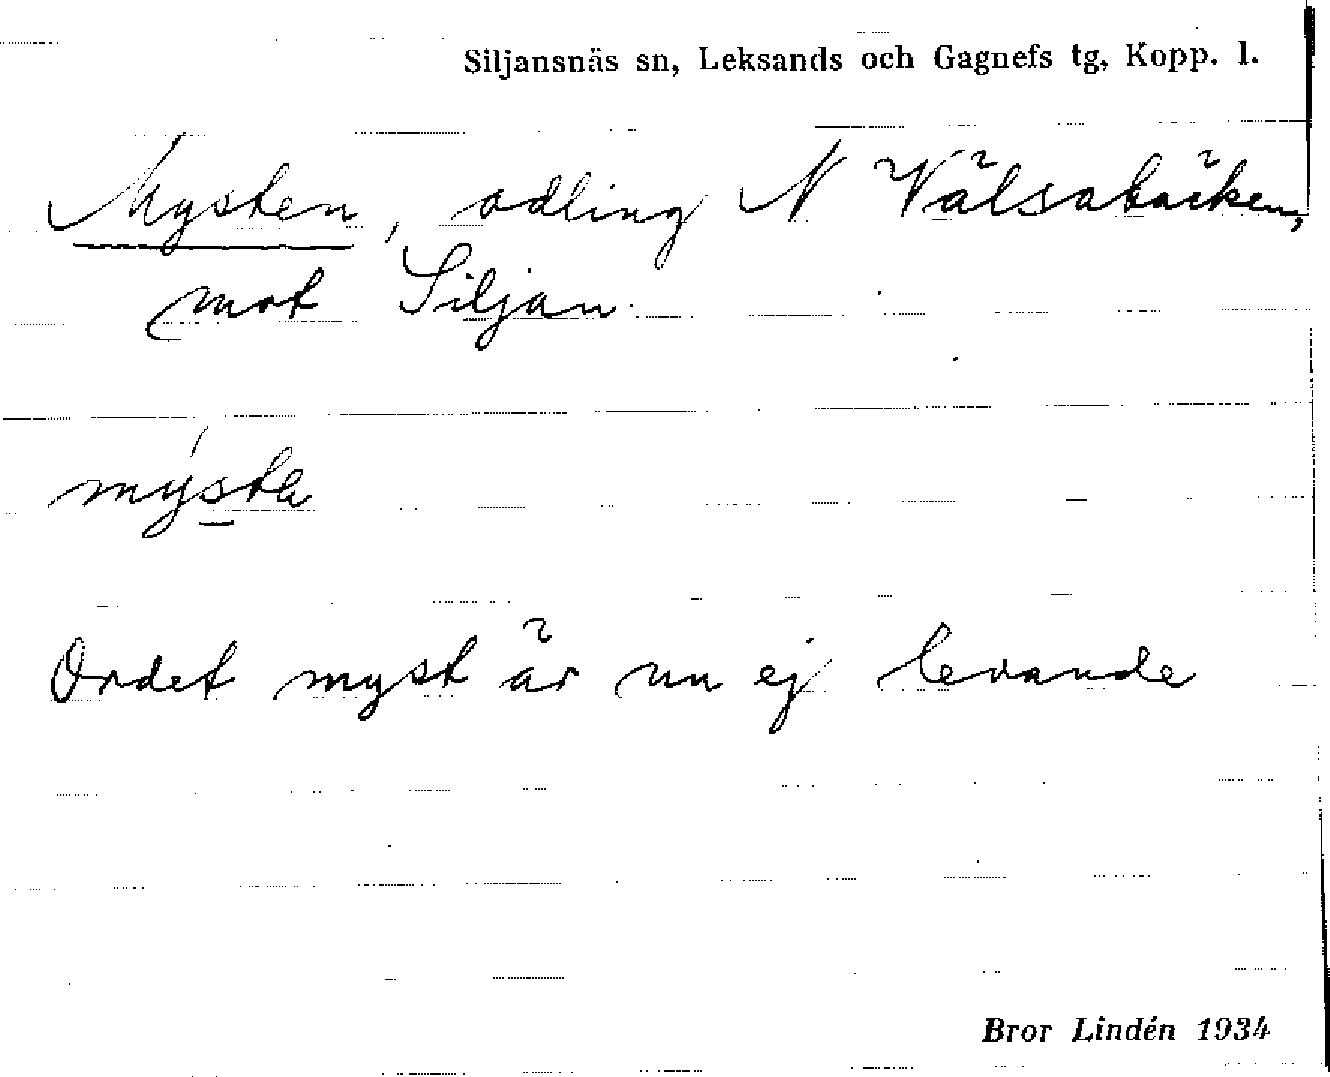 Siljansnäs sn, Leksands och Gagnefs tg, Kopp. l.
Mysten, odling N Välsabäcken,
mot Siljan.
mýsta
Ordet myst är nu ej levande
Bror Lindén 1934